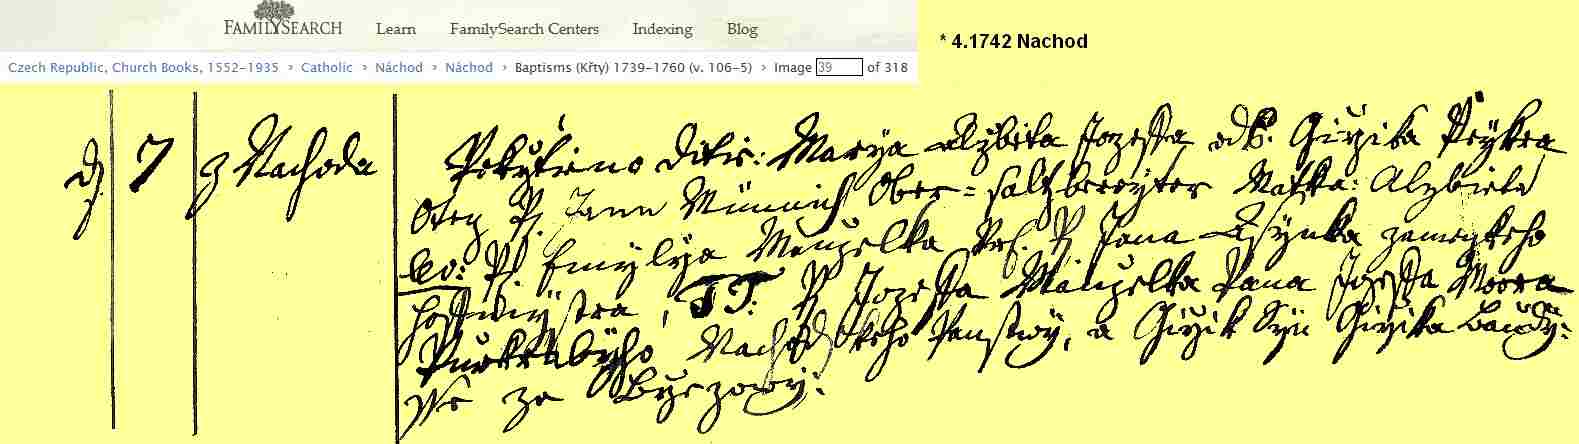 FAMILYSEARCH Learn FamilySearch Centers Indexing Blog
* 4.1742 Nachod
Czech Republic, Church Books, 1552-1935 > Catholic > Náchod > Náchod > Baptisms (Křty) 1739-1760 (v. 106-5) > Image 39 of 318
7 z Nachoda Pokrztieno Ditie: Marya Alzbieta Jozeffa odk: Girzika Peykra
Otecz P. Jann Münnich Ober=saltzbereyter Matka: Alzbieta
P. Emylya Manzelka P. Jana zameczkeho
hoffmistra, TT: P. Jozeffa Manzelka Pana Jozeffa Moora
Purkrabyho Nachodskeho Panstwy, a Girzik Syn Girzika
ze Brzezowy: